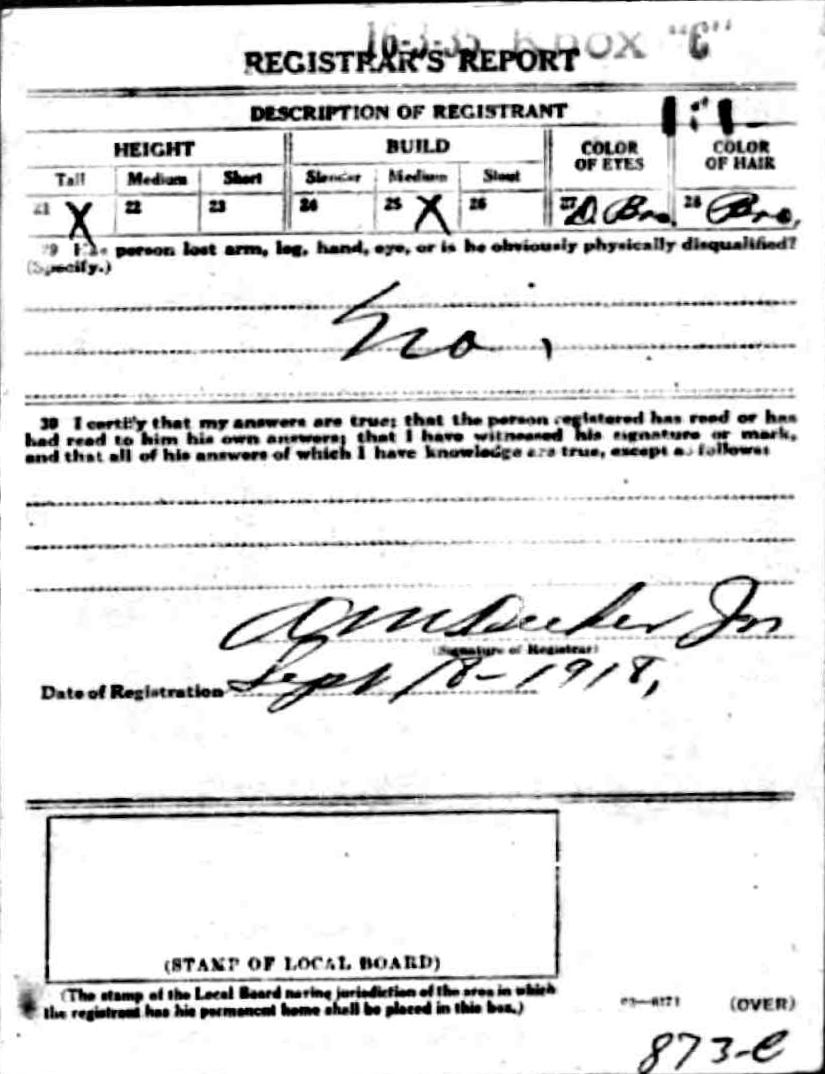 16-3-35 Knox "C"
REGISTRAR'S REPORT
DESCRIPTION OF REGISTRANT
HEIGHT BUILD COLOR OF EYES COLOR OF HAIR
Tall Medium Short Slender Medium Stout
21 X 22 23 24 25 X 26 27 D. Bro. 28 Bro.
29 Has person lost arm, leg, hand, eye, or is he obviously physically disqualified?
(Specify.)
No.
30 I certify that my answers are true; that the person registered has read or has
had read to him his own answers; that I have witnessed his signature or mark,
and that all of his answers of which I have knowledge are true, except as follows:
Jr
(Signature of Registrar)
Date of Registration Sept 18-1918,
(STAMP OF LOCAL BOARD)
(The stamp of the Local Board having jurisdiction of the area in which
the registrant has his permanent home shall be placed in this box.)
03—6171 (OVER)
873-C